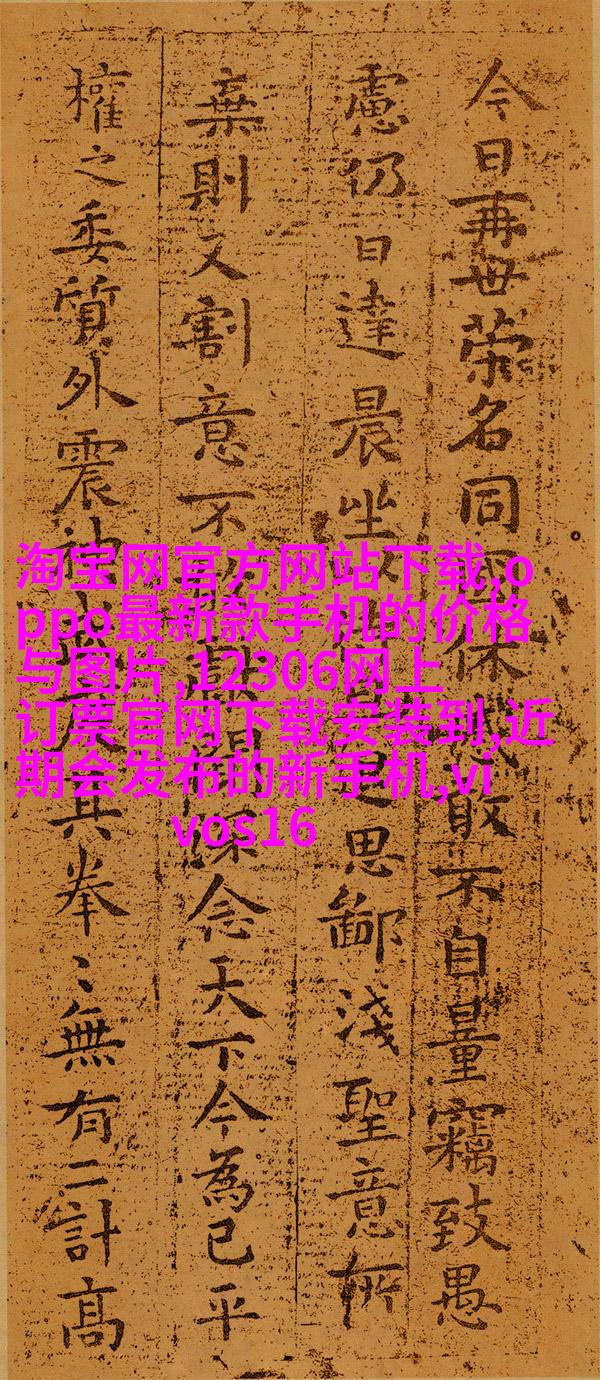 今日再世榮名同
休
敢不自量竊致愚
慮仍日達晨坐以
是思鄙淺聖意所
棄則又割意不
獻
深念天下今為已平
權之委質外震神
其拳〻無有二計高
淘宝网官方网站下载,o
ppo最新款手机的价格
与图片,12306网上
订票官网下载安装到,近
期会发布的新手机,vi
vos16